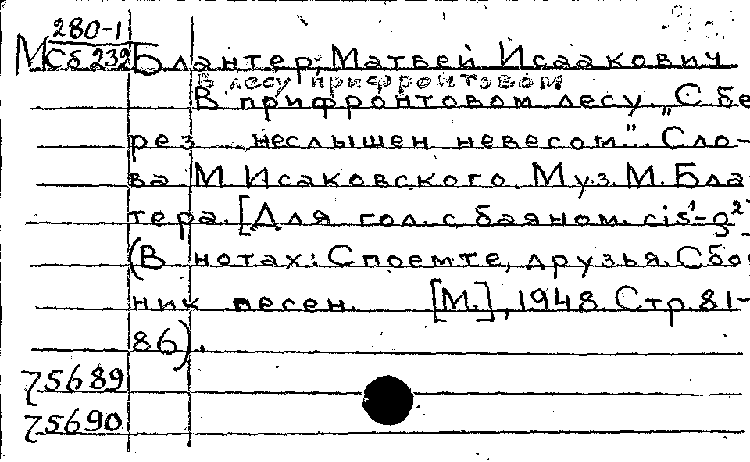 280-1
М Сб 232 Блантер, Матвей Исаакович
В лесу прифронтовом
В прифронтовом лесу „С бе
рез неслышен невесом". Сло-
ва М. Исаковского. Муз. М. Бла
тера. [Для гол. с баяном. cis¹-g²]
(В нотах: Споемте, друзья. Сбо
ник песен. [М.], 1948. Стр. 81-
86).
75689
75690